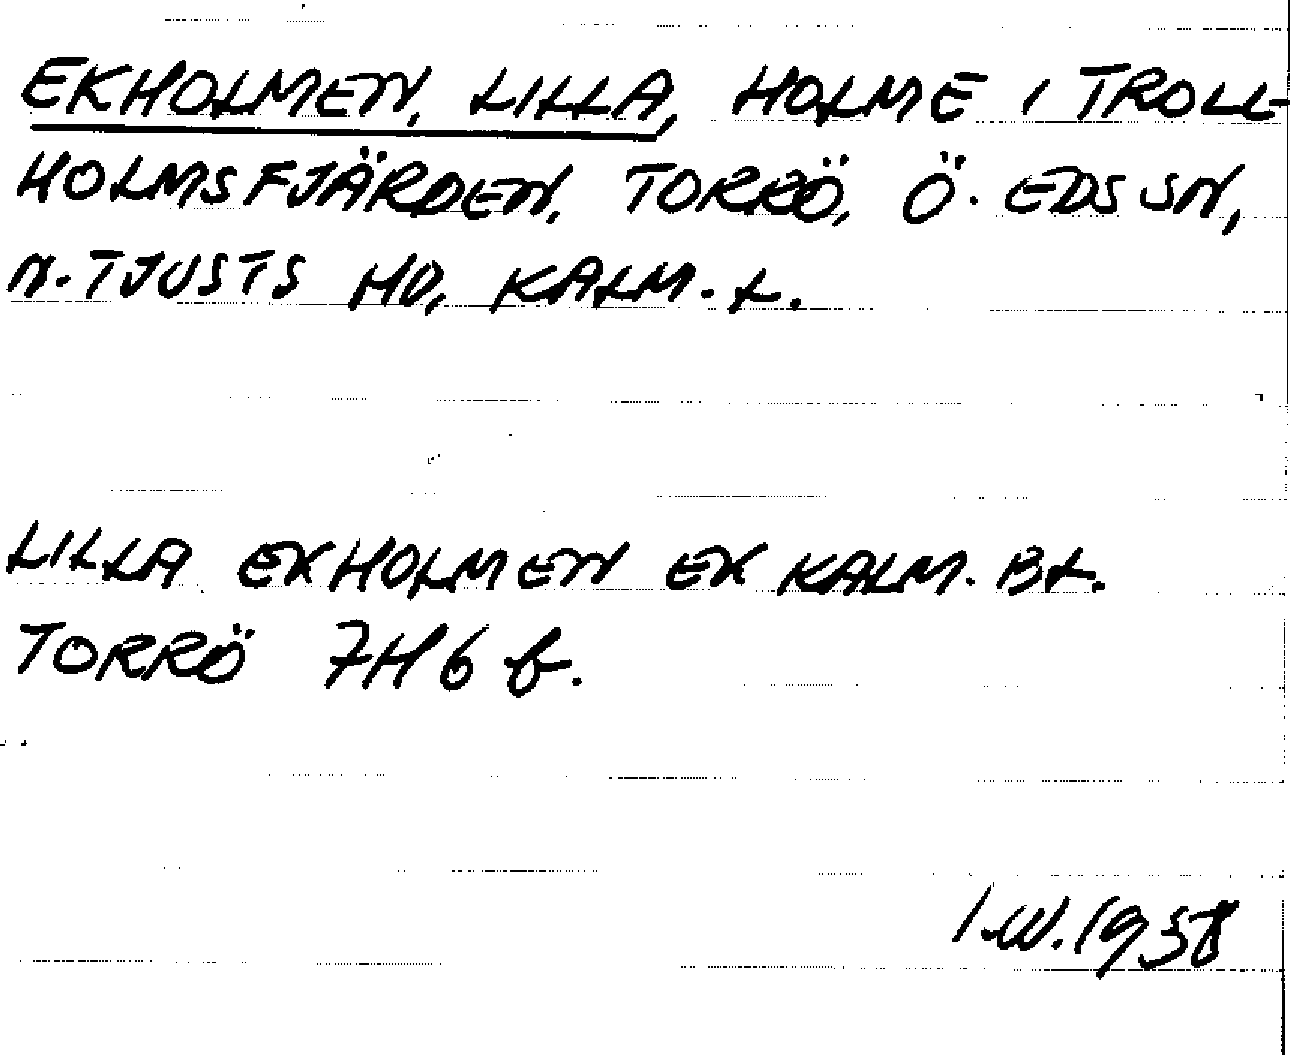 EKHOLMEN, LILLA, HOLME I TROLL-
HOLMSFJÄRDEN, TORRÖ, Ö. EDS SN,
N. TJUSTS HD, KALM. L.
LILLA EKHOLMEN EK KALM. BL.
TORRÖ 7H6 b.
I.W. 1958